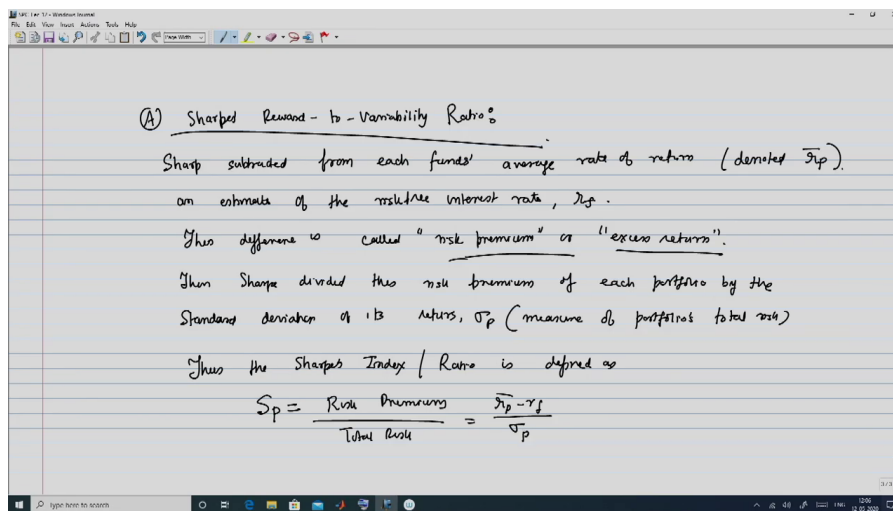 SPC Lec 12 - Windows Journal
File Edit View Insert Actions Tools Help
Page Width
(A) Sharpes Reward - to - Variability Ratio:
Sharp subtracted from each funds' average rate of return (denoted r̄p).
an estimate of the risk free interest rate, rf.
This difference is called "risk premium" or "excess return".
Then Sharpe divided this risk premium of each portfolio by the
Standard deviation of its returs, σp (measure of portfolio's total risk)
Thus the Sharpes Index / Ratio is defined as
Sp = Risk Premium / Total Risk = r̄p - rf / σp
3/3
Type here to search
ENG
12:06
12-05-2020